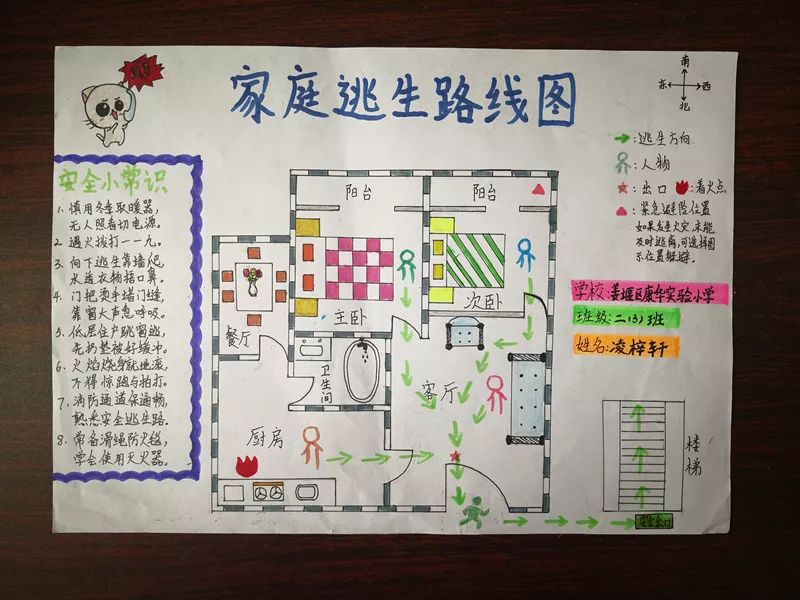 家庭逃生路线图
119
南
东 西
北
安全小常识
1、慎用冬季取暖器，
无人照看切电源。
2、遇火拨打一一九。
3、向下逃生靠墙爬，
水浇衣物捂口鼻。
4、门把烫手堵门缝，
靠窗大声急呼吸。
5、低层住户跳窗逃，
先扔垫被好缓冲。
6、火焰烧身就地滚，
不得惊跑与拍打。
7、消防通道保通畅，
熟悉安全逃生路。
8、常备滑绳防火毯，
学会使用灭火器。
:逃生方向
:人物
:出口 :着火点
:紧急避险位置
如果发生火灾，未能
及时逃离，可选择图
示位置躲避。
学校:姜堰区康华实验小学
班级:二(3)班
姓名:凌梓轩
阳台
阳台
主卧
次卧
餐厅
卫生间
客厅
厨房
楼梯
安全出口